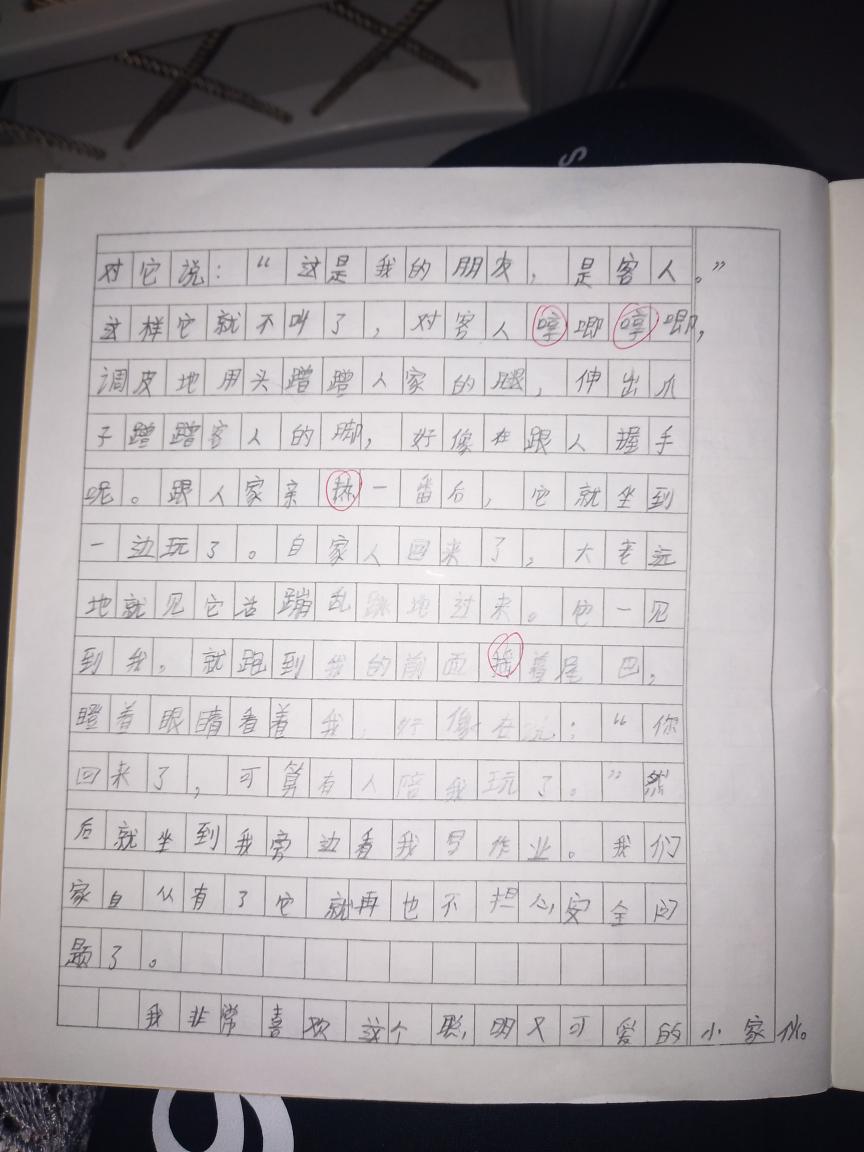 S
对它说：“这是我的朋友，是客人。”
这样它就不叫了，对客人哼唧哼唧，
调皮地用头蹭蹭人家的腿，伸出爪
子蹭蹭客人的脚，好像在跟人握手
呢。跟人家亲热一番后，它就坐到
一边玩了。自家人回来了，大老远
地就见它活蹦乱跳地过来。他一见
到我，就跑到我的前面摇着尾巴，
瞪着眼睛看着我，好像在说：“你
回来了，可算有人陪我玩了。”然
后就坐到我旁边看我写作业。我们
家自从有了它就再也不担心安全问
题了。
我非常喜欢这个聪明又可爱的小家伙。